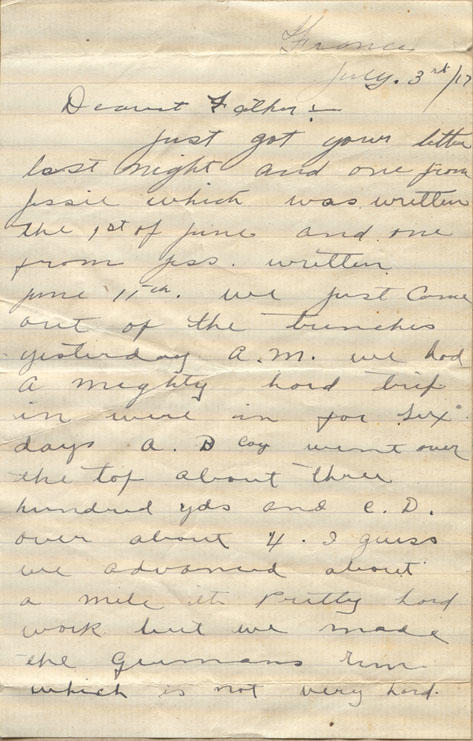 France
July. 3rd/17
Dearest Father:-
just got your letter
last night and one from
Jessie which was written
the 1st of june and one
from jss. written
june 15th. we just come
out of the trenches
yesterday A.M. we had
a mighty hard trip
in were in for six
days A. B coy went over
the top about three
hundred yds and C. D.
over about 4. I guess
we advanced about
a mile its pretty hard
work but we made
the Germans run
which is not very hard.